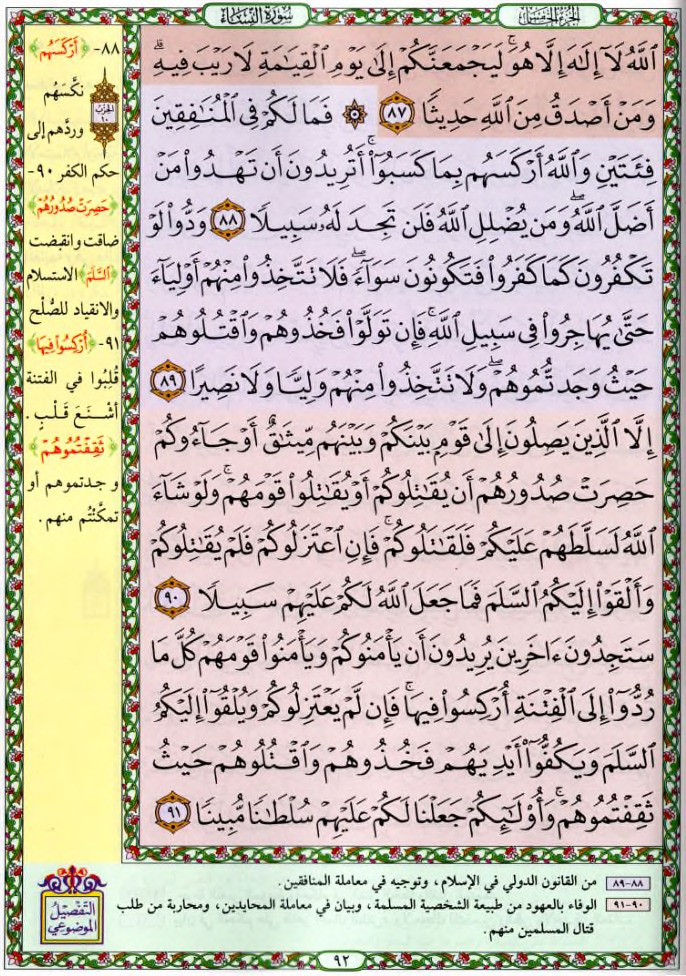 الجزء الخامس
سورة النساء
ٱللَّهُ لَآ إِلَـٰهَ إِلَّا هُوَ ۚ لَيَجْمَعَنَّكُمْ إِلَىٰ يَوْمِ ٱلْقِيَـٰمَةِ لَا رَيْبَ فِيهِ ۗ
وَمَنْ أَصْدَقُ مِنَ ٱللَّهِ حَدِيثًا ٨٧ ۞ فَمَا لَكُمْ فِى ٱلْمُنَـٰفِقِينَ
فِئَتَيْنِ وَٱللَّهُ أَرْكَسَهُم بِمَا كَسَبُوٓا۟ ۚ أَتُرِيدُونَ أَن تَهْدُوا۟ مَنْ
أَضَلَّ ٱللَّهُ ۖ وَمَن يُضْلِلِ ٱللَّهُ فَلَن تَجِدَ لَهُۥ سَبِيلًا ٨٨ وَدُّوا۟ لَوْ
تَكْفُرُونَ كَمَا كَفَرُوا۟ فَتَكُونُونَ سَوَآءً ۖ فَلَا تَتَّخِذُوا۟ مِنْهُمْ أَوْلِيَآءَ
حَتَّىٰ يُهَاجِرُوا۟ فِى سَبِيلِ ٱللَّهِ ۚ فَإِن تَوَلَّوْا۟ فَخُذُوهُمْ وَٱقْتُلُوهُمْ
حَيْثُ وَجَدتُّمُوهُمْ ۖ وَلَا تَتَّخِذُوا۟ مِنْهُمْ وَلِيًّا وَلَا نَصِيرًا ٨٩
إِلَّا ٱلَّذِينَ يَصِلُونَ إِلَىٰ قَوْمٍۭ بَيْنَكُمْ وَبَيْنَهُم مِّيثَـٰقٌ أَوْ جَآءُوكُمْ
حَصِرَتْ صُدُورُهُمْ أَن يُقَـٰتِلُوكُمْ أَوْ يُقَـٰتِلُوا۟ قَوْمَهُمْ ۚ وَلَوْ شَآءَ
ٱللَّهُ لَسَلَّطَهُمْ عَلَيْكُمْ فَلَقَـٰتَلُوكُمْ ۚ فَإِنِ ٱعْتَزَلُوكُمْ فَلَمْ يُقَـٰتِلُوكُمْ
وَأَلْقَوْا۟ إِلَيْكُمُ ٱلسَّلَمَ فَمَا جَعَلَ ٱللَّهُ لَكُمْ عَلَيْهِمْ سَبِيلًا ٩٠
سَتَجِدُونَ ءَاخَرِينَ يُرِيدُونَ أَن يَأْمَنُوكُمْ وَيَأْمَنُوا۟ قَوْمَهُمْ كُلَّ مَا
رُدُّوٓا۟ إِلَى ٱلْفِتْنَةِ أُرْكِسُوا۟ فِيهَا ۚ فَإِن لَّمْ يَعْتَزِلُوكُمْ وَيُلْقُوٓا۟ إِلَيْكُمُ
ٱلسَّلَمَ وَيَكُفُّوٓا۟ أَيْدِيَهُمْ فَخُذُوهُمْ وَٱقْتُلُوهُمْ حَيْثُ
ثَقِفْتُمُوهُمْ ۚ وَأُو۟لَـٰٓئِكُمْ جَعَلْنَا لَكُمْ عَلَيْهِمْ سُلْطَـٰنًا مُّبِينًا ٩١
٨٨- ﴿أَرْكَسَهُم﴾
نكَّسَهُم
الحزب
١٠
وردَّهم إلى
حكم الكفر ٩٠-
﴿حَصِرَتْ صُدُورُهُمْ﴾
ضاقت وانقبضت
﴿السَّلَمَ﴾ الاستسلام
والانقياد للصُّلْح
٩١- ﴿أُرْكِسُوا فِيهَا﴾
قُلِبُوا في الفتنة
أَشْنَعَ قَلْبٍ .
﴿ثَقِفْتُمُوهُمْ﴾
وجدتموهم أو
تمكَّنْتُم منهم .
٨٨-٨٩ من القانون الدولي في الإسلام، وتوجيه في معاملة المنافقين .
٩٠-٩١ الوفاء بالعهود من طبيعة الشخصية المسلمة، وبيان في معاملة المحايدين، ومحاربة من طلب
قتال المسلمين منهم .
التَّفْصِيلُ
الموضوعي
٩٢